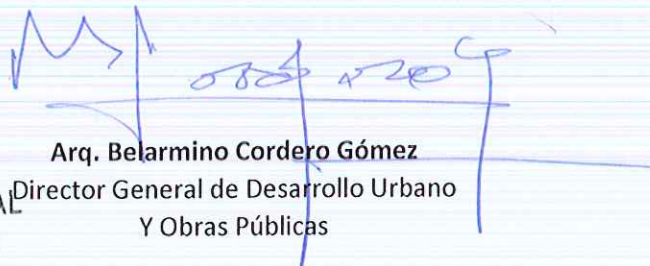 Arq. Belarmino Cordero Gómez
AL Director General de Desarrollo Urbano
Y Obras Públicas